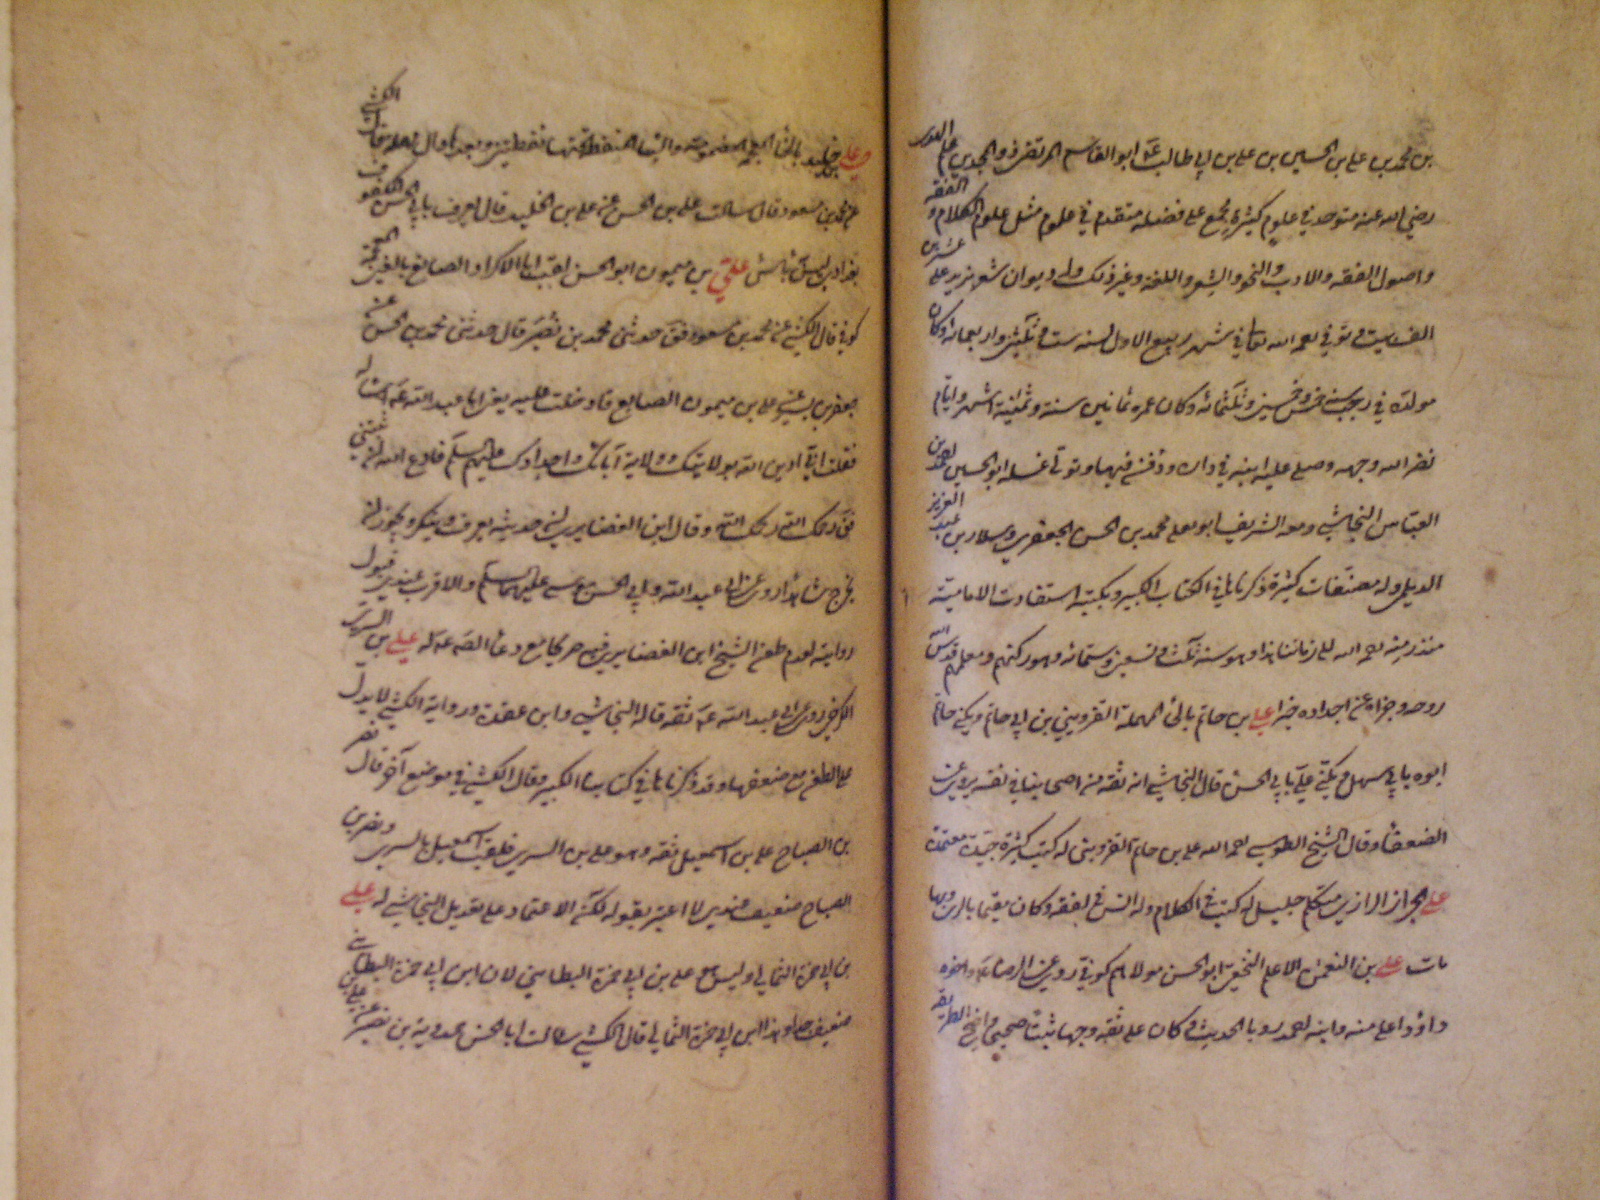 بن محمد بن علي بن الحسين بن علي بن ابي طالب ابو القاسم المرتضى ذو المجدين علم الهدى
رضي الله عنه متوحد في علوم كثيرة مجمع على فضله متقدم في علوم مثل علوم الكلام و الفقه
واصول الفقه والادب والنحو والشعر واللغة وغير ذلك وله ديوان شعر يزيد على عشرين
الف بيت وتوفي رحمه الله في شهر ربيع الاول لسنة ست وثلثين واربعمائة وكان
مولده في رجب سنة خمس وخمسين وثلثمائة وكان عمره ثمانين سنة وثمانية اشهر وايام
نضر الله وجهه وصلى عليه ابنه في داره ودفن فيها وتولى غسله ابو الحسين احمد بن
العباس النجاشي ومعه الشريف ابو يعلى محمد بن الحسن الجعفري وسلار بن عبد العزيز
الديلمي وله مصنفات كثيرة ذكرناها في الكتاب الكبير وبكتبه استفادت الامامية
منذ زمنه رحمه الله الى زماننا هذا وهو سنة ثلث وتسعين وستمائة وهو ركنهم ومعلمهم قدس الله
روحه وجزاه عن اجداده خيرا علي بن حاتم بالحاء المهملة القزويني بن ابي حاتم ويكنى حاتم
ابوه بابي سهل ويكنى علي بابي الحسن قال النجاشي انه ثقة من اصحابنا في نفسه يروي عن
الضعفاء وقال الشيخ الطوسي رحمه الله علي بن حاتم القزويني له كتب كثيرة جيدة معتمدة
علي الخزاز الرازي متكلم جليل له كتب في الكلام وله انس في الفقه وكان مقيما بالري وبها
مات علي بن النعمان الاعلم النخعي ابو الحسن مولاهم كوفي روى عن الرضا واخوه
داود اعلى منه وابنه رويا الحديث وكان علي ثقة وجها ثبتا صحيحا واضح الطريقة
علي بن خليد بالخاء المعجمة
عن محمد بن مسعود قال سالت علي بن الحسن عن علي بن الخليد قال يعرف بابي الحسن المكفوف
بغدادي ليس به باس علي بن ميمون ابو الحسن لقبه ابو الاكراد الصائغ بالغين المعجمة
كوفي قال الكشي عن محمد بن مسعود قال حدثني محمد بن نصير قال حدثني محمد بن الحسن عن
جعفر بن بشير عن علي بن ميمون الصايغ قال دخلت عليه يعني ابا عبد الله
فقلت اني ادين الله بولايتك وولاية آبائك واجدادك عليهم السلم فادع الله ان يثبتني
فقال رحمك الله رحمك الله وقال ابن الغضايري حديثه يعرف وينكر ويجوز ان
يخرج شاهدا روى عن ابي عبد الله وابي الحسن موسى عليهما السلم والاقرب عندي قبول
روايته لعدم طعن الشيخ ابن الغضايري فيه صريحا مع دعاء الصادق له علي بن السري
الكرخي روى عن ابي عبد الله ثقة قاله النجاشي وابن عقدة ورواية الكشي لا تدل
على الطعن مع ضعفها وقد ذكرناها في كتابنا الكبير وقال الكشي في موضع آخر قال نصر
بن الصباح علي بن اسمعيل ثقة وهو علي بن السري فلقب اسمعيل بالسري ونصر بن
الصباح ضعيف عندي لا اعتبر بقوله لكن الاعتماد على تعديل النجاشي له علي
بن ابي حمزة الثمالي وليس هو علي بن ابي حمزة البطايني لان ابن ابي حمزة البطايني
ضعيف جدا وهذا ابن ابي حمزة الثمالي قال الكشي سالت ابا الحسن حمدويه بن نصير عن علي بن